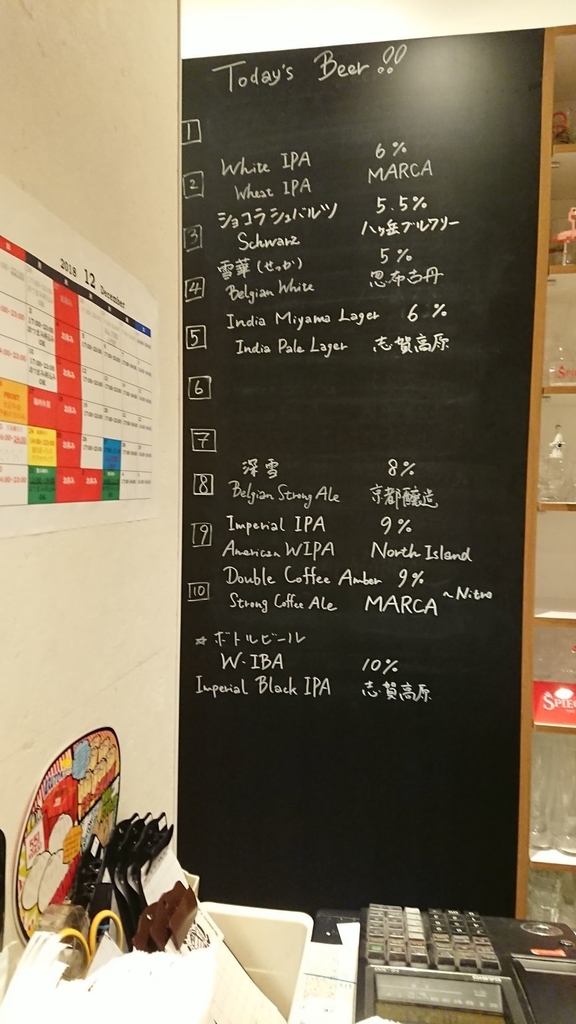 Today's Beer!!
1
White IPA 6%
2 Wheat IPA MARCA
ショコラシュバルツ 5.5%
3 Schwarz 八ヶ岳ブルワリー
雪華(せっか) 5%
4 Belgian White 忽布古丹
India Miyama Lager 6%
5 India Pale Lager 志賀高原
6
7
深雪 8%
8 Belgian Strong Ale 京都醸造
Imperial IPA 9%
9 American WIPA North Island
Double Coffee Amber 9%
10 Strong Coffee Ale MARCA ~Nitro
☆ボトルビール
W-IBA 10%
Imperial Black IPA 志賀高原
2018 12 December
SPIEG